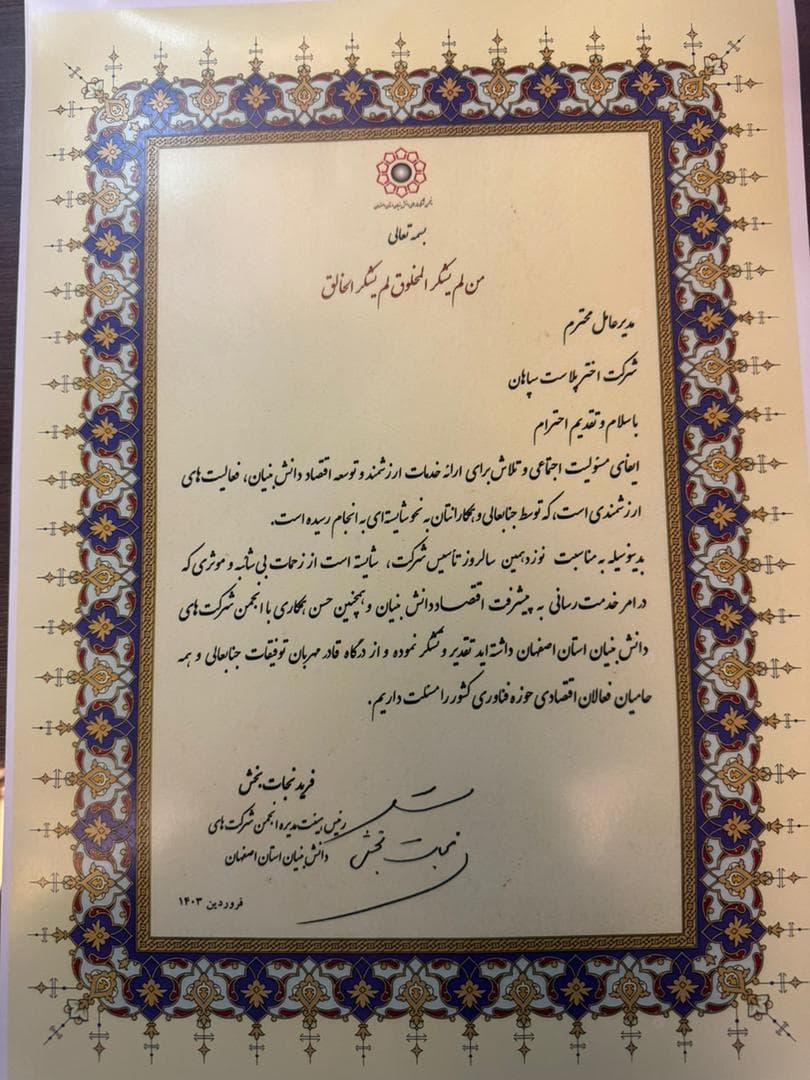 انجمن شرکت‌های دانش بنیان استان اصفهان
بسمه تعالی
من لم یشکر المخلوق لم یشکر الخالق
مدیرعامل محترم
شرکت اختر پلاست سپاهان
باسلام و تقدیم احترام
ایفای مسئولیت اجتماعی و تلاش برای ارائه خدمات ارزشمند و توسعه اقتصاد دانش بنیان، فعالیت های
ارزشمندی است، که توسط جنابعالی و همکارانتان به نحو شایسته ای به انجام رسیده است.
بدینوسیله به مناسبت نوزدهمین سالروز تاسیس شرکت، شایسته است از زحمات بی شائبه و موثری که
در امر خدمت رسانی به پیشرفت اقتصاد دانش بنیان و همچنین حسن همکاری با انجمن شرکت های
دانش بنیان استان اصفهان داشته اید تقدیر و تشکر نموده و از درگاه قادر مهربان توفیقات جنابعالی و همه
حامیان فعالان اقتصادی حوزه فناوری کشور را مسئلت داریم.
فرید نجات بخش
رئیس هیئت مدیره انجمن شرکت های
دانش بنیان استان اصفهان
نجات بخش
فروردین ۱۴۰۳